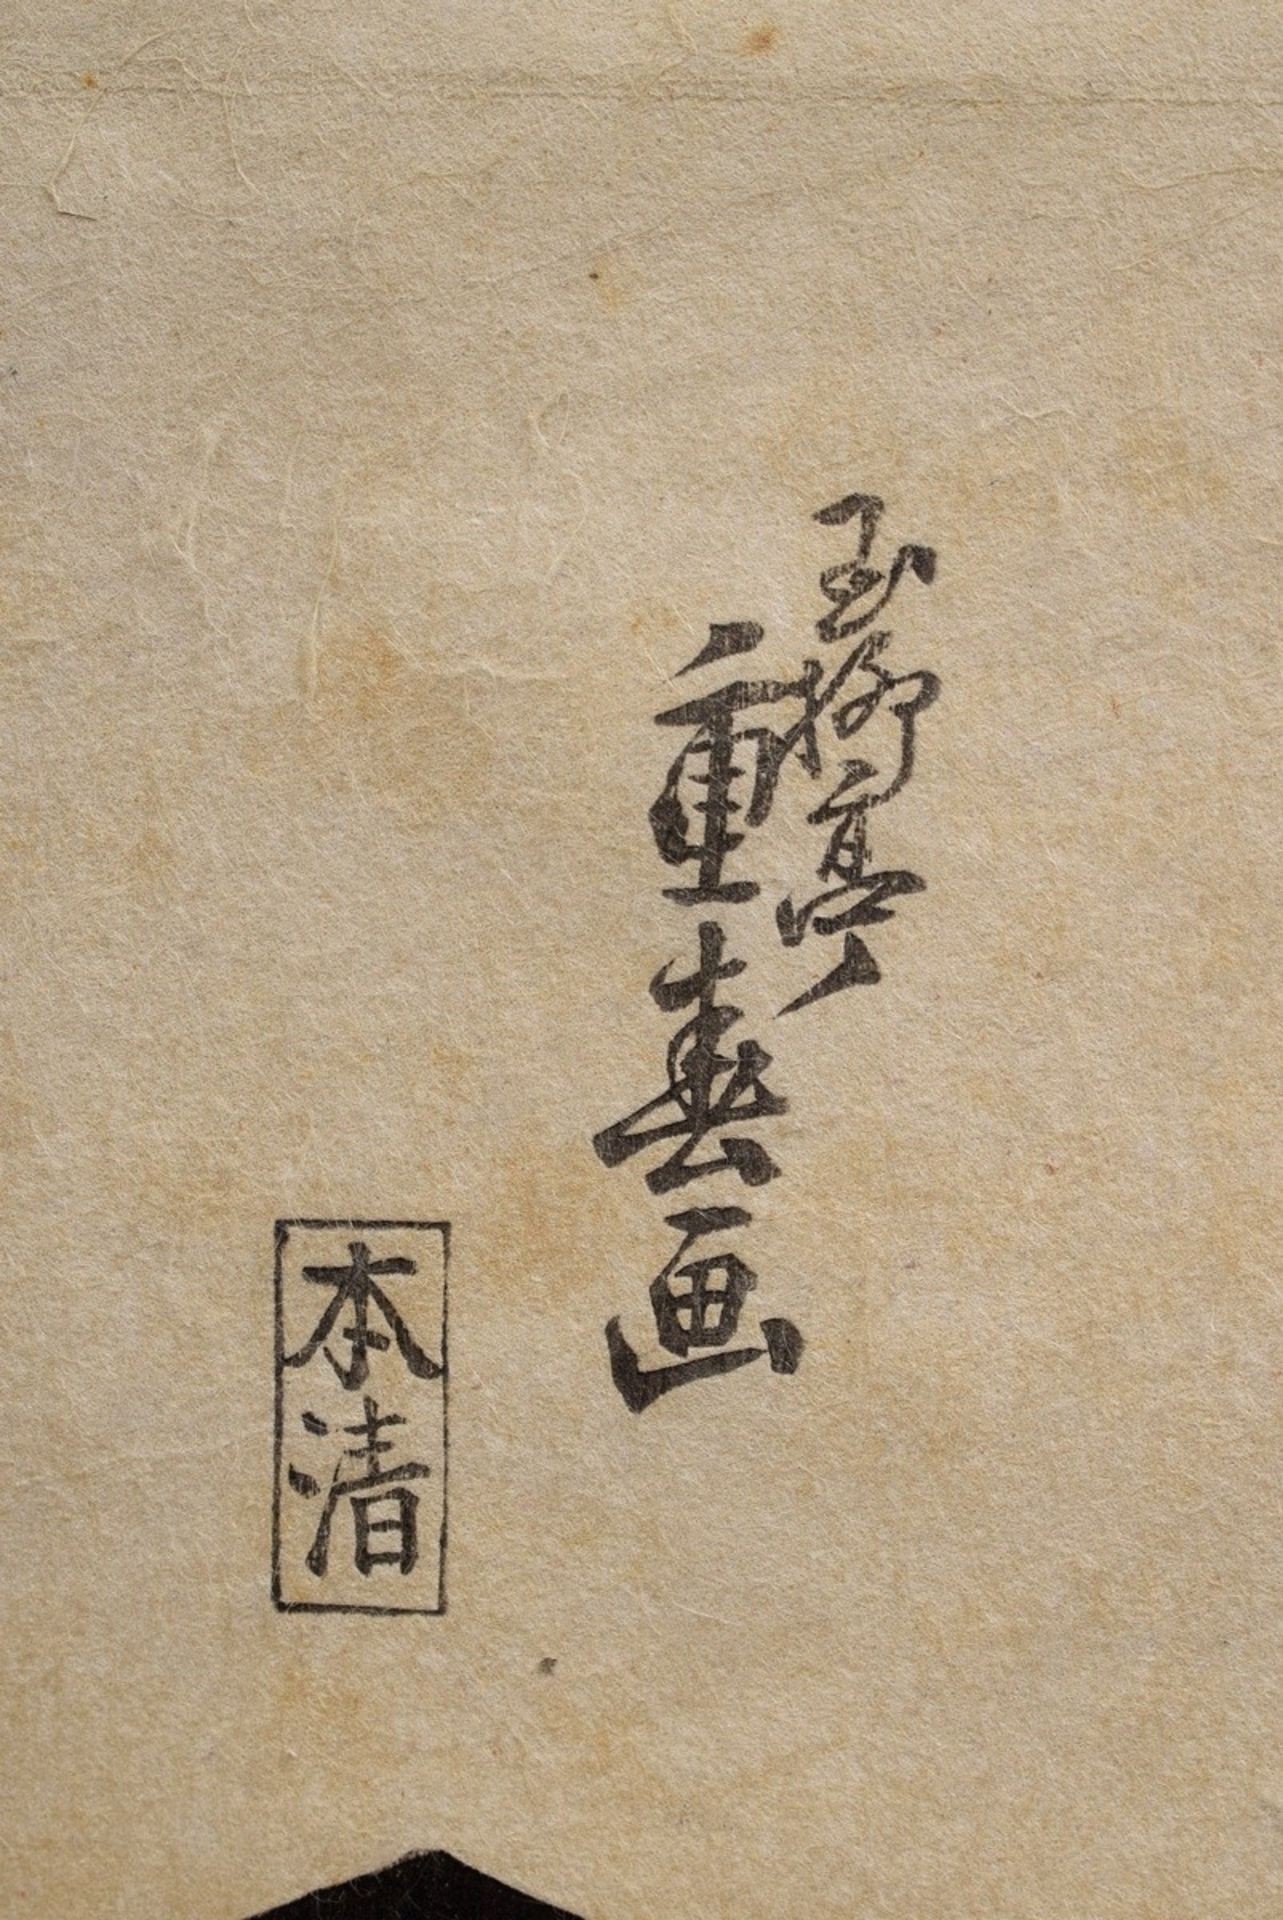 玉柳亭
重春画
本清